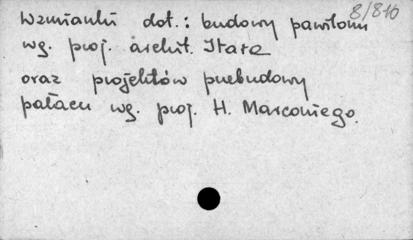 8/810
Wzmianki dot.: budowy pawilonu
wg. proj. archit. Itara
oraz projektów przebudowy
pałacu wg. proj. H. Marconiego.